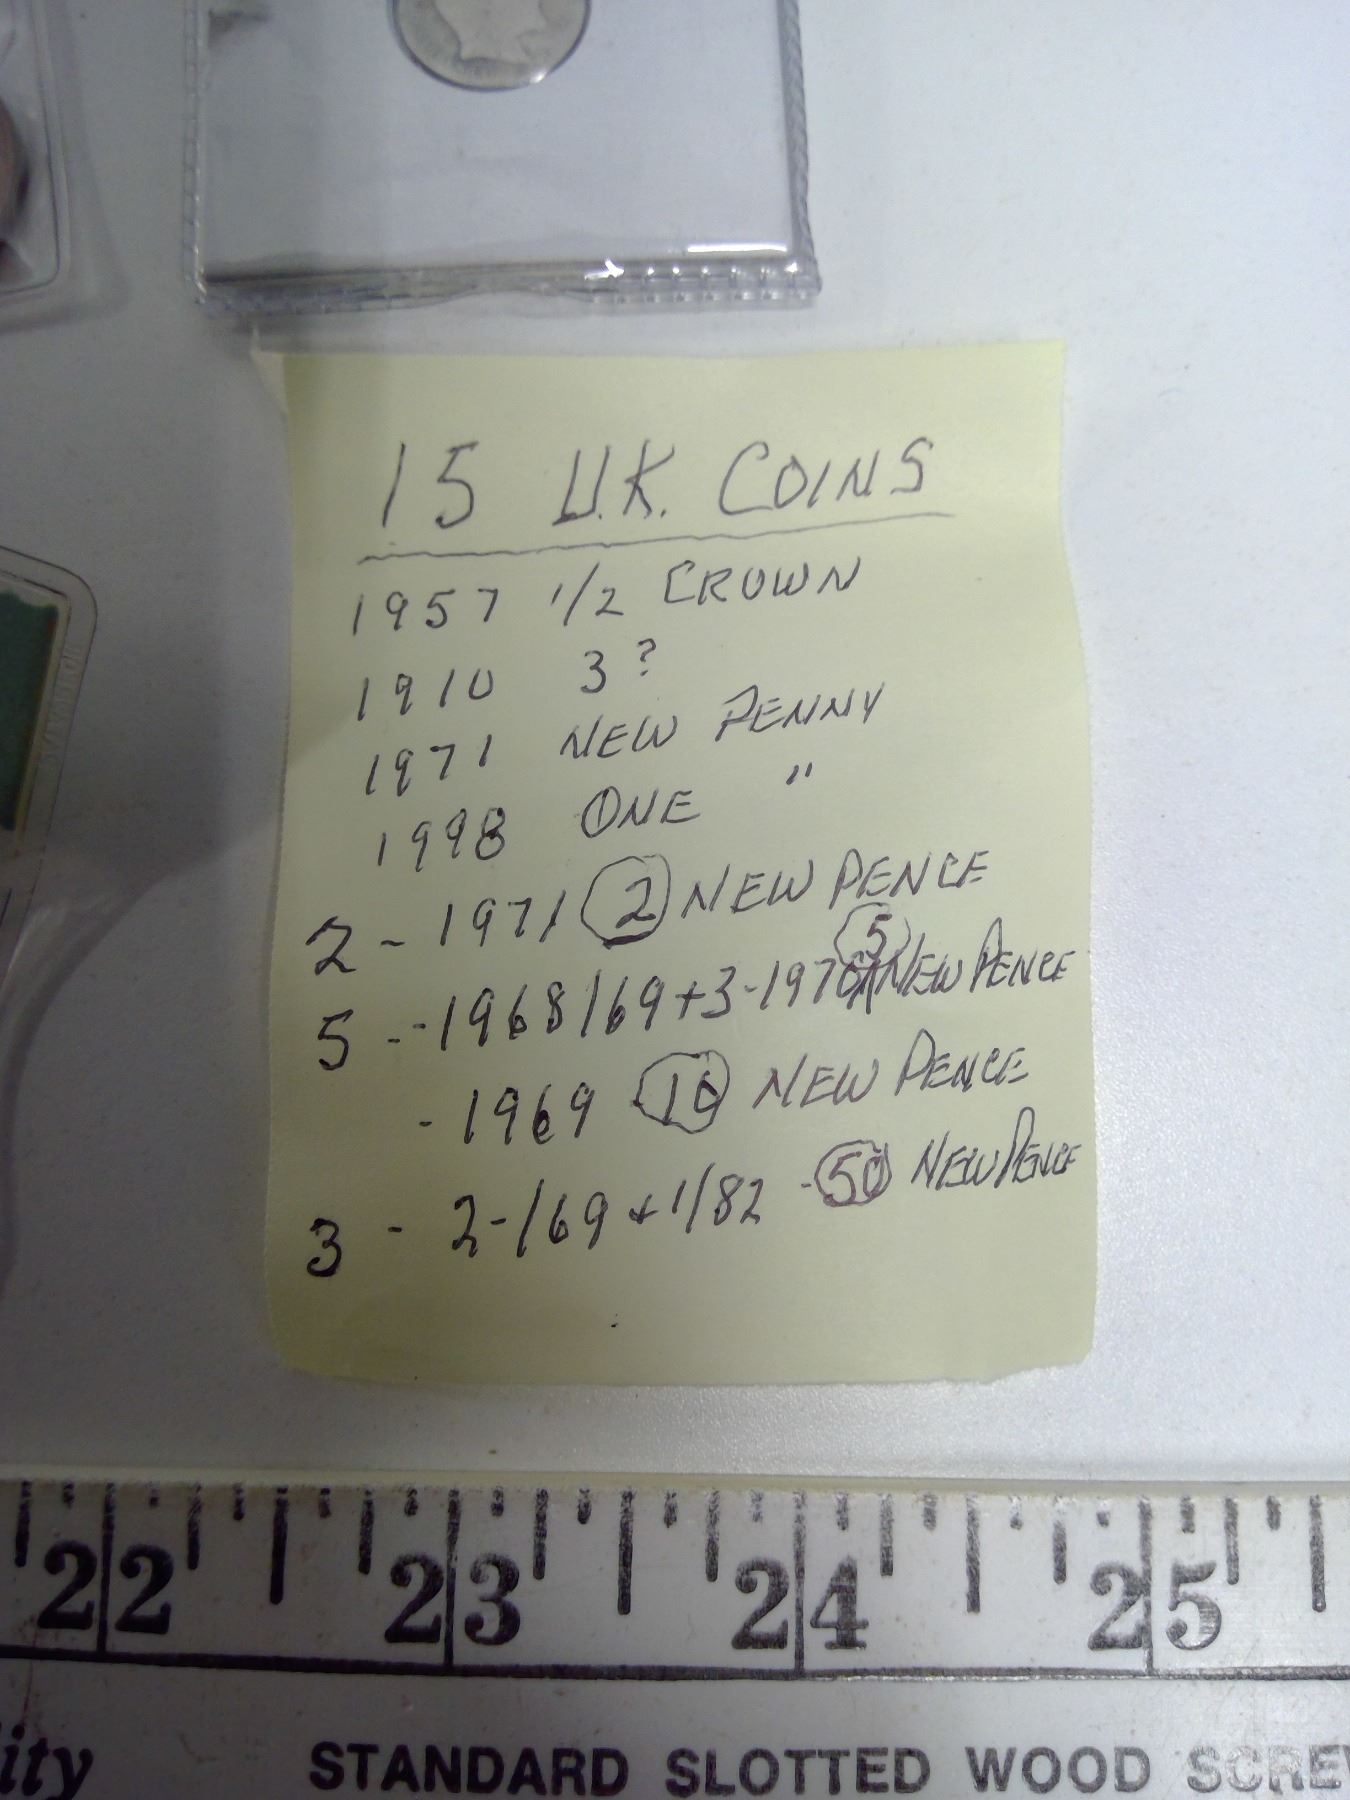 15 U.K. COINS
1957 1/2 CROWN
1910 3?
1971 NEW PENNY
1998 ONE "
2 - 1971 2 NEW PENCE
5 - - 1968/69 + 3 - 1970 5 NEW PENCE
- 1969 10 NEW PENCE
3 - 2 - /69 + 1/82 - 50 NEW PENCE
22 23 24 25
STANDARD SLOTTED WOOD